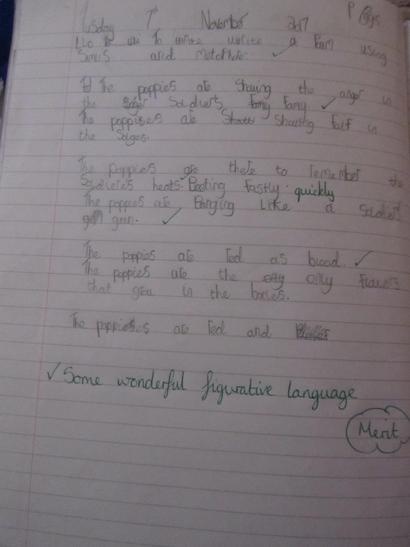 usday 7th November 2017 P
L.O to use To write write a Poam using
Simils and Metephor
The poppies are Showing the anger in
the Soldiers Fany ✓
The poppises are Showing Faif in
the Solgers.
The poppies are there to remember the
Soldiers hearts Beating fastly quickly
The poppies are Banging Like a Soldiers
gun. ✓
The poppies are red as blood. ✓
The poppies are the only Flowers
that grew in the bones.
The poppies are red and
✓ Some wonderful figurative language
Merit